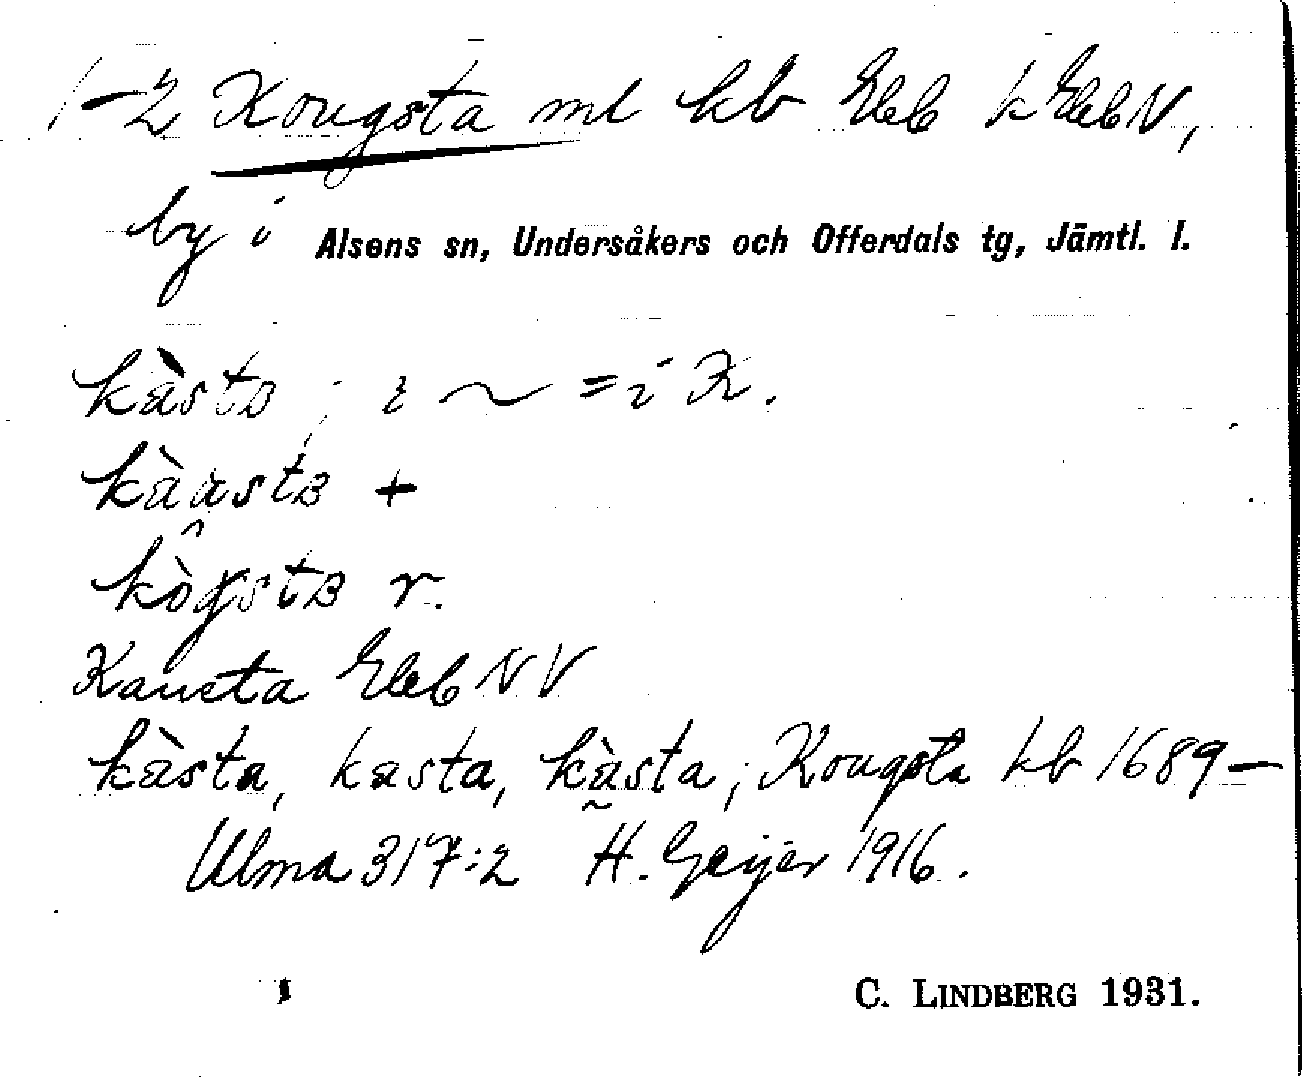 1-2 Kougsta ml kb Eleb k ElebN,
by i Alsens sn, Undersåkers och Offerdals tg, Jämtl. l.
kàstɐ ; i ~ = i K.
kàastɐ +
kògstɐ r.
Kaucta Eleb NV
kàsta, kasta, kàsta; Kougsta kb 1689–
Ulma 317:2 H. Geijer 1916.
C. LINDBERG 1931.